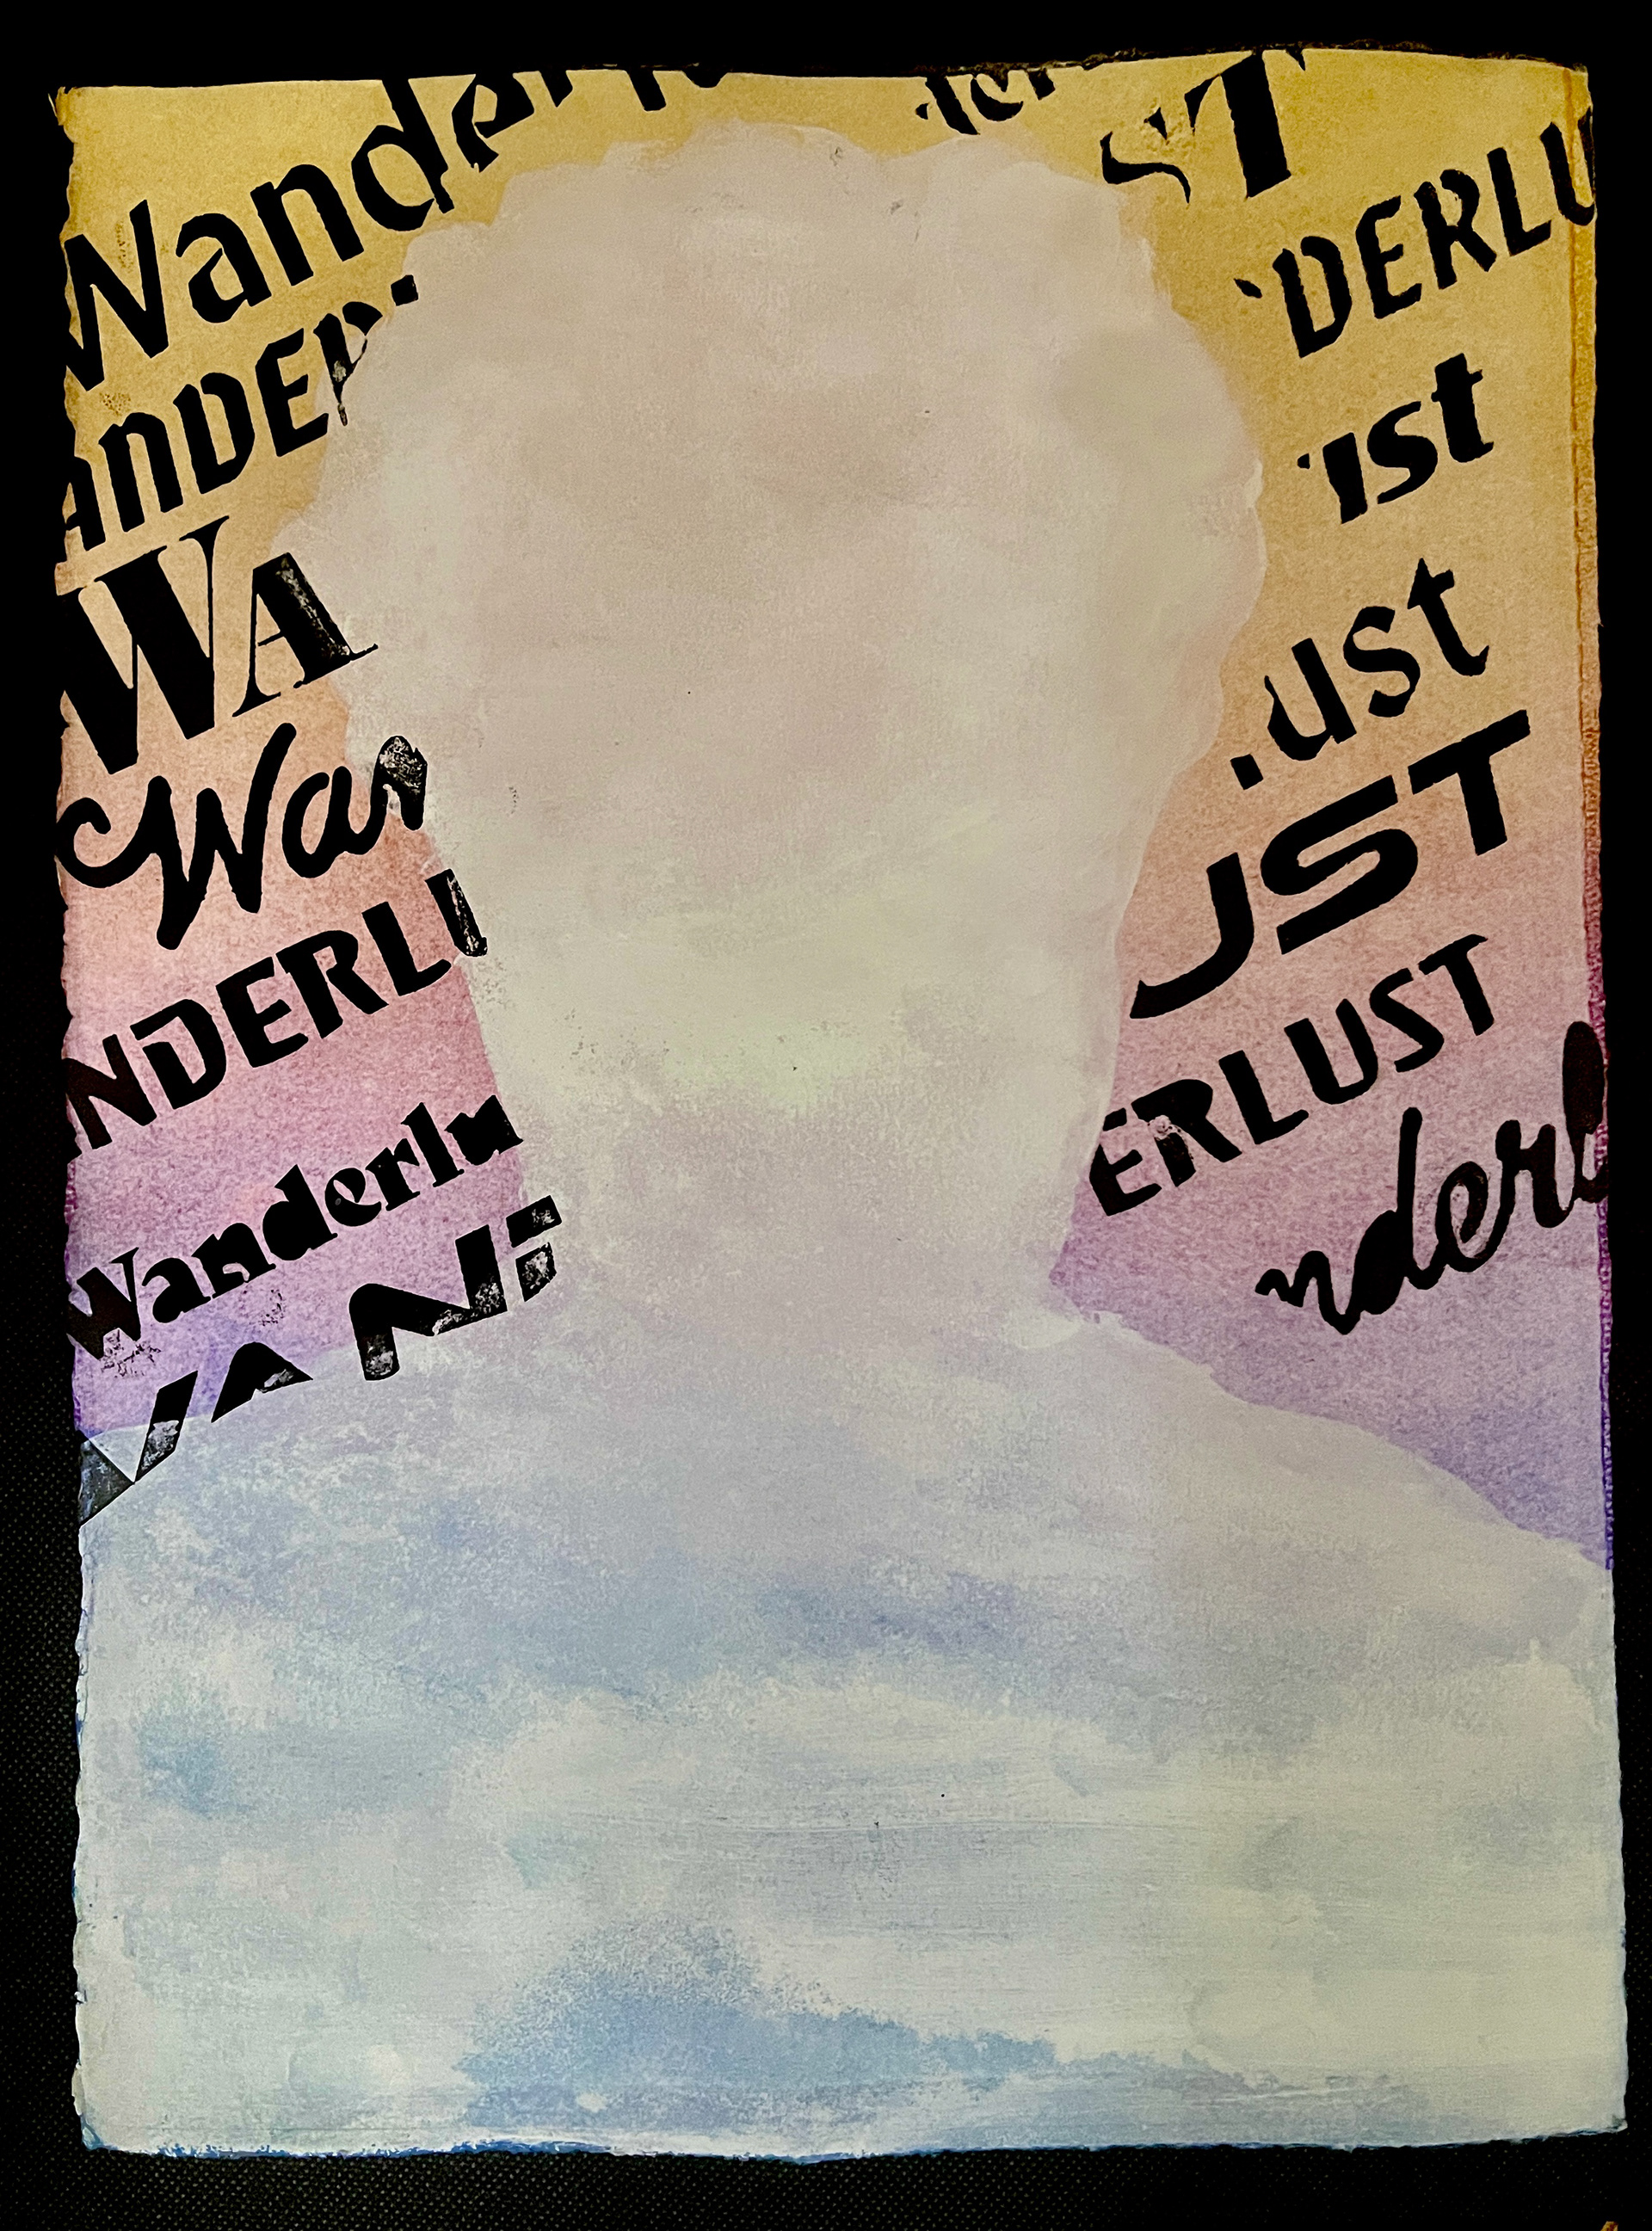 Wanderlu
ANDER
WA
Wan
NDERLU
Wanderlu
WAND
ST
DERLU
ust
ust
UST
ERLUST
nderl